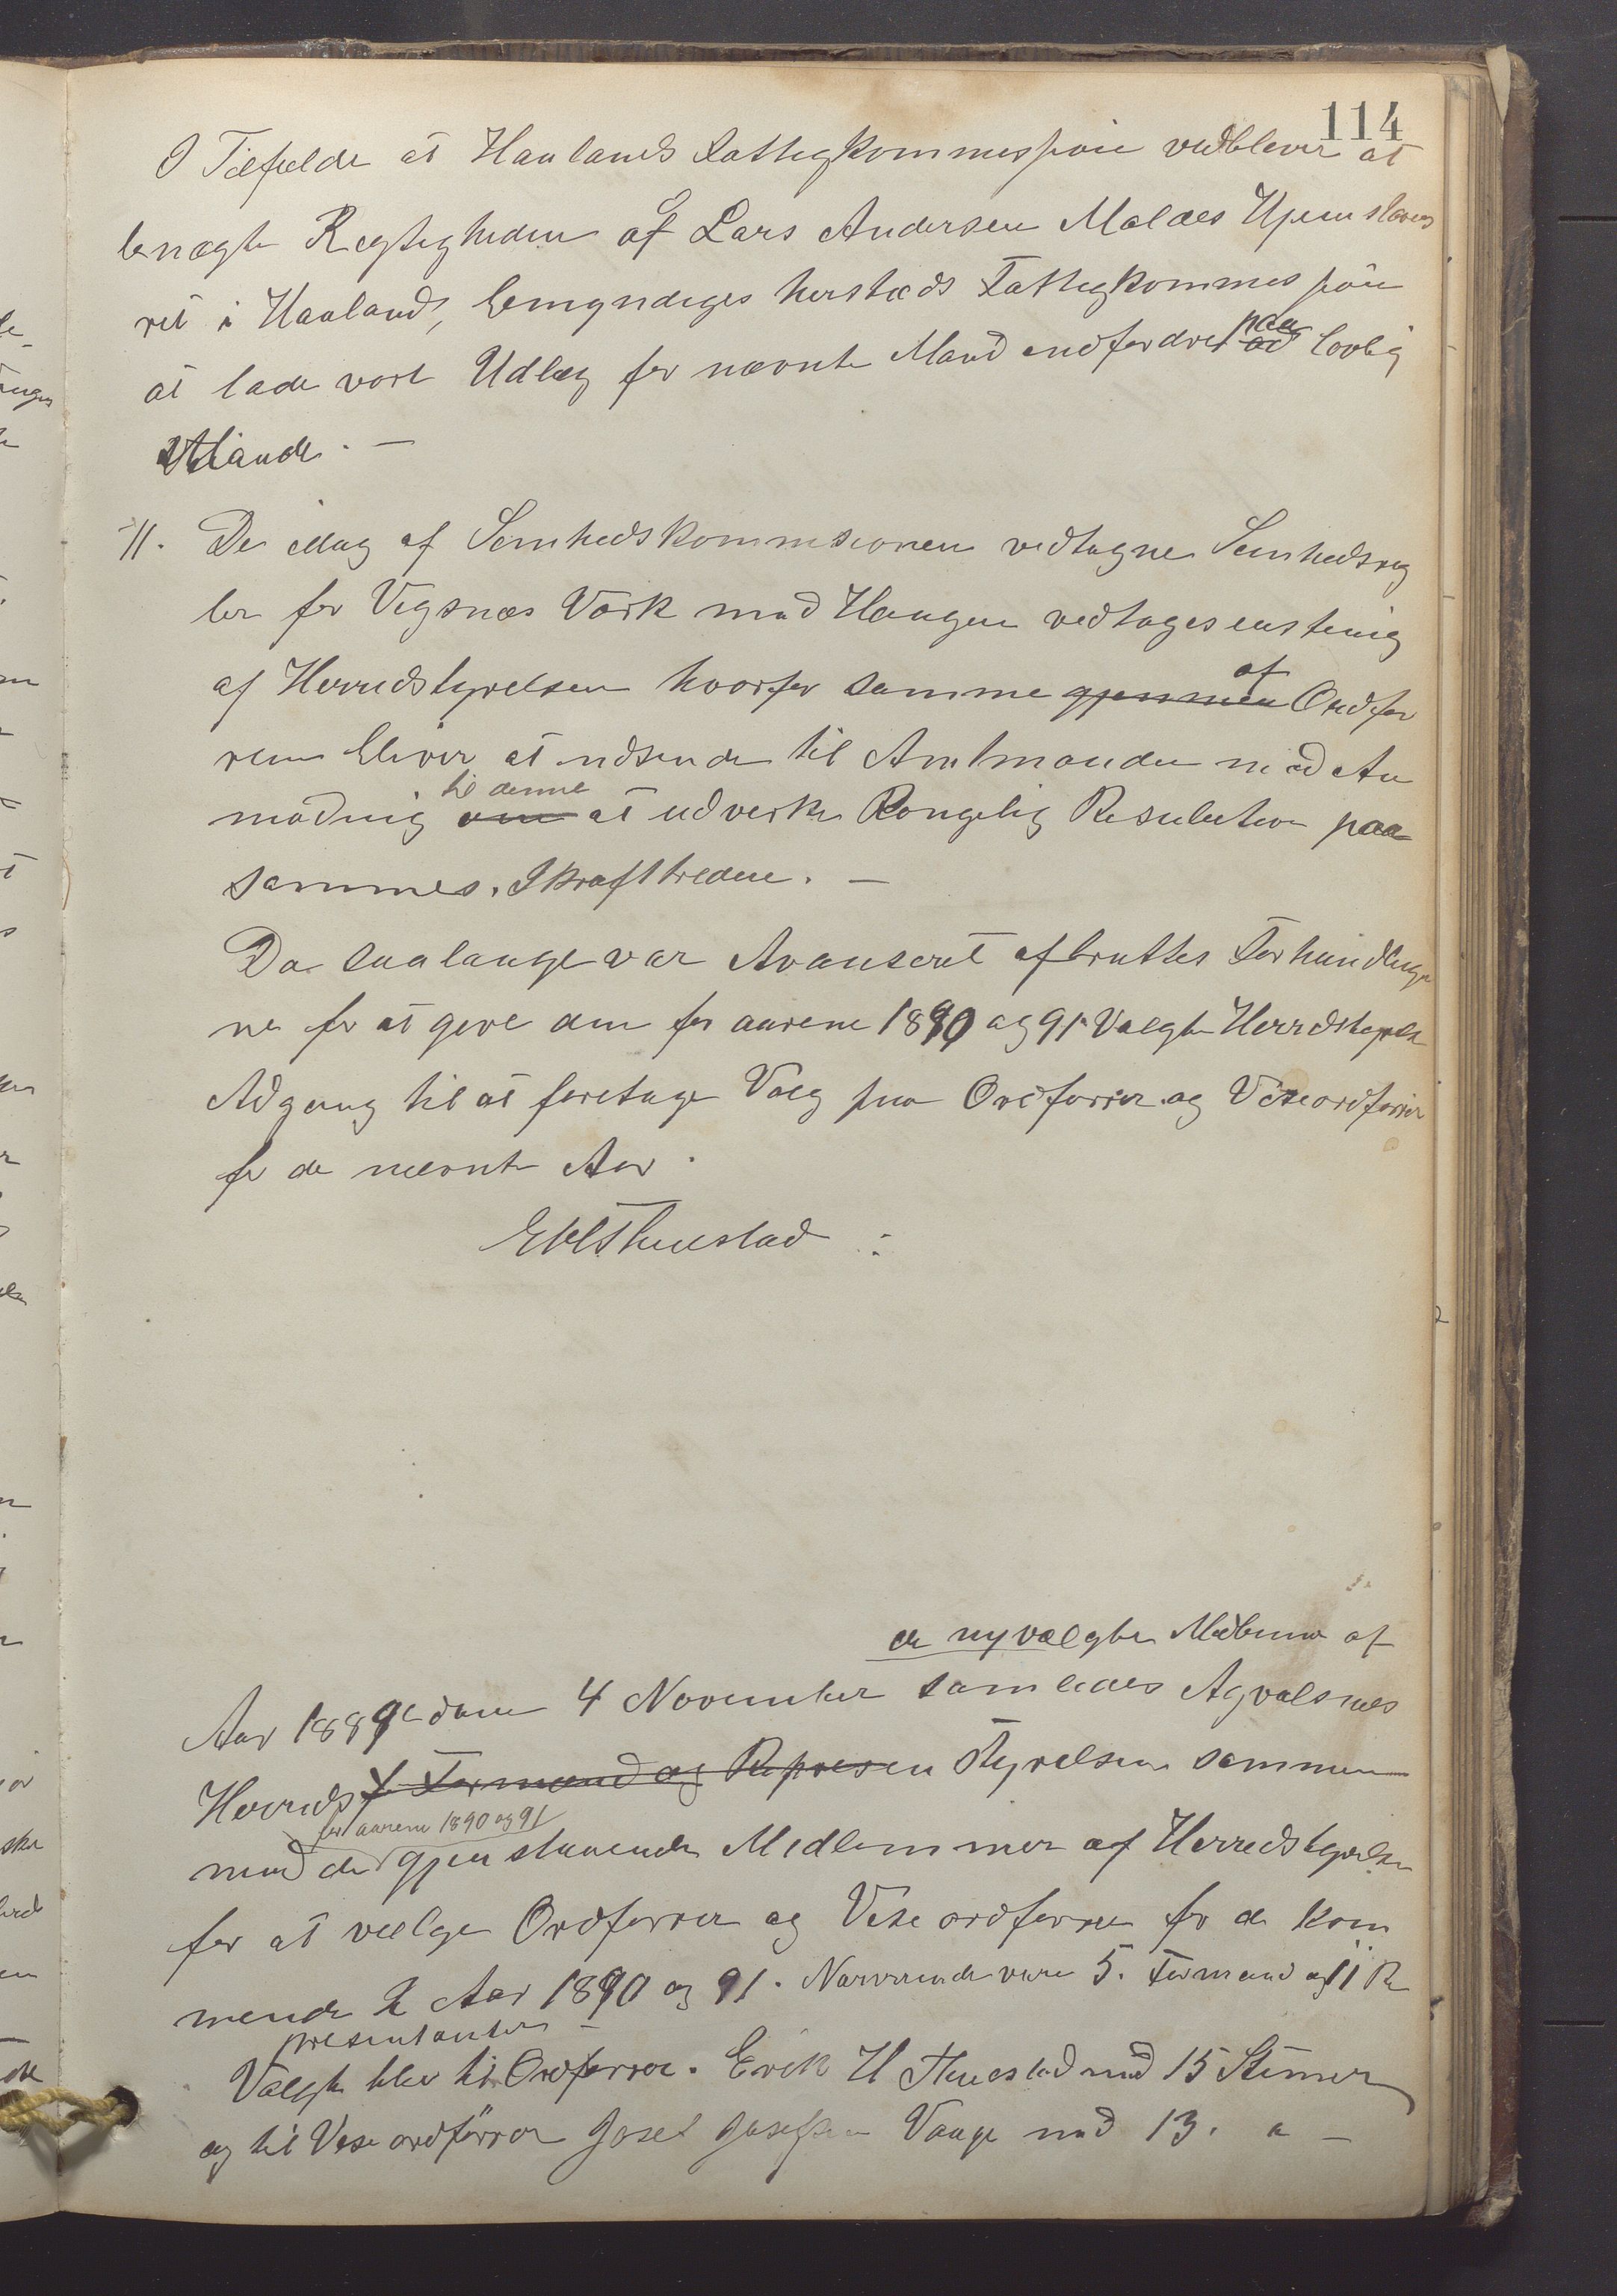 114
I Tilfælde at Haalands Fattigkommission vedbliver at
benægte Rigtigheden af Lars Andersen Maldes Hjemstavns
ret i Haaland, bemyndiges herstæds Fattigkommission
at lade vort Udlæg for nævnte Mand indfordret paa lovlig
Maade. —
11. De idag af Sundhedskommisionen vedtagne Sundhedsreg
ler for Vigsnæs Værk med Haugen vedtages enstemig
af Herredstyrelsen hvorfor samme gjennem af Ordfør
reren bliver at indsende til Amtmanden med An
modning om til denne at udvirke Kongelig Resulution paa
sammes Ikrafttreden. —
Da saalange var Avanseret afbruttes Forhandlinge
ne for at give den for aarene 1890 og 91 Valgte Herredstyrelse
Adgang til at foretage Valg paa Ordfører og Viseordfører
for de nævnte Aar.
E H Thuestad
de nyvalgte Medlemer af
Aar 1889 den 4 November samledes Agvalsnes
Herreds Formænd og Represen Styrelsen sammen
for aarene 1890 og 91
med de gjenstaaende Medlemmer af Herredstyrelsen
for at vælge Ordfører og Viseordfører for de kom
mende 2 Aar 1890 og 91. Nærverende vare 5. Formænd og 11 Re
presentanter —
Valgt blev til Ordfører. Erik H Thuestad med 15 Stemer
og til Viseordfører Josef Josefsen Vaage med 13. " —